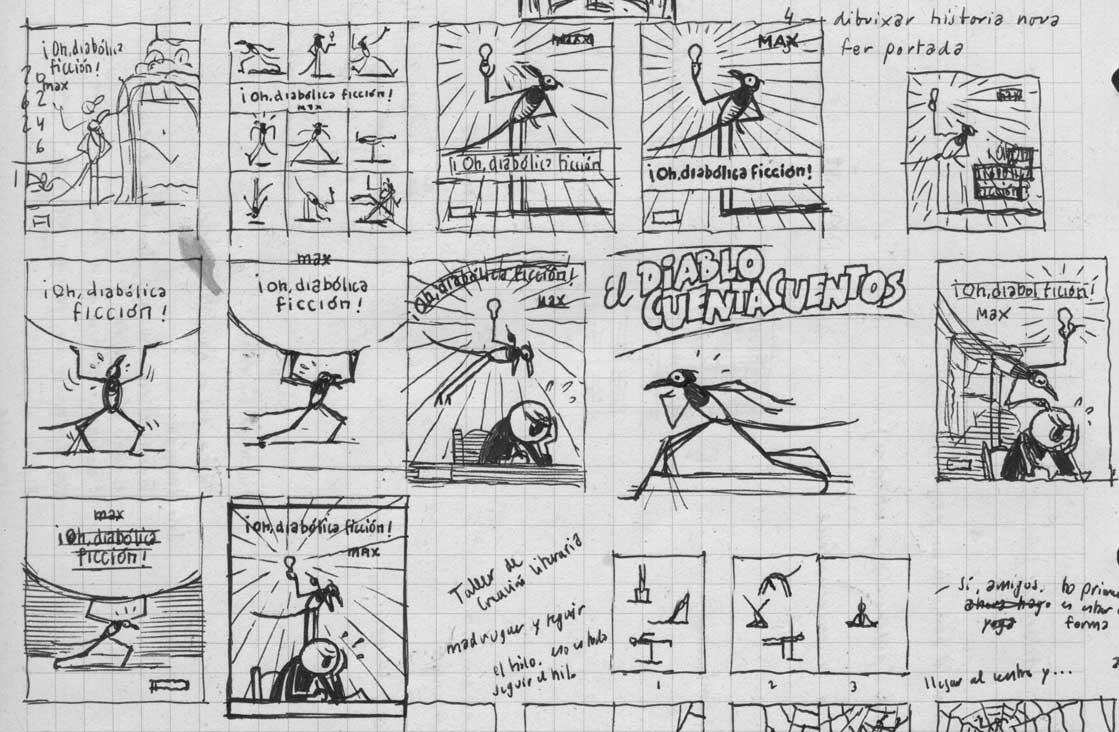 4 - dibuixar història nova
fer portada
¡Oh, diabólica
ficción!
max
¡Oh, diabólica ficción!
max
MAX
¡Oh, diabólica ficción
MAX
¡Oh, diabólica ficción!
¡Oh, diabólica
ficción!
max
¡Oh, diabólica
ficción!
¡Oh, diabólica ficción!
max
El DiABLO
CUENTACUENTOS
¡Oh, diabol ficción!
MAX
max
¡Oh, diabólica
ficción!
¡Oh, diabólica ficción!
MAX
Taller de
Creación literaria
madrugar y seguir
el hilo.
seguir el hilo
1
2
3
- Sí, amigos. lo prime
ahora hago es estar
yoga forma
llegar al centro y...